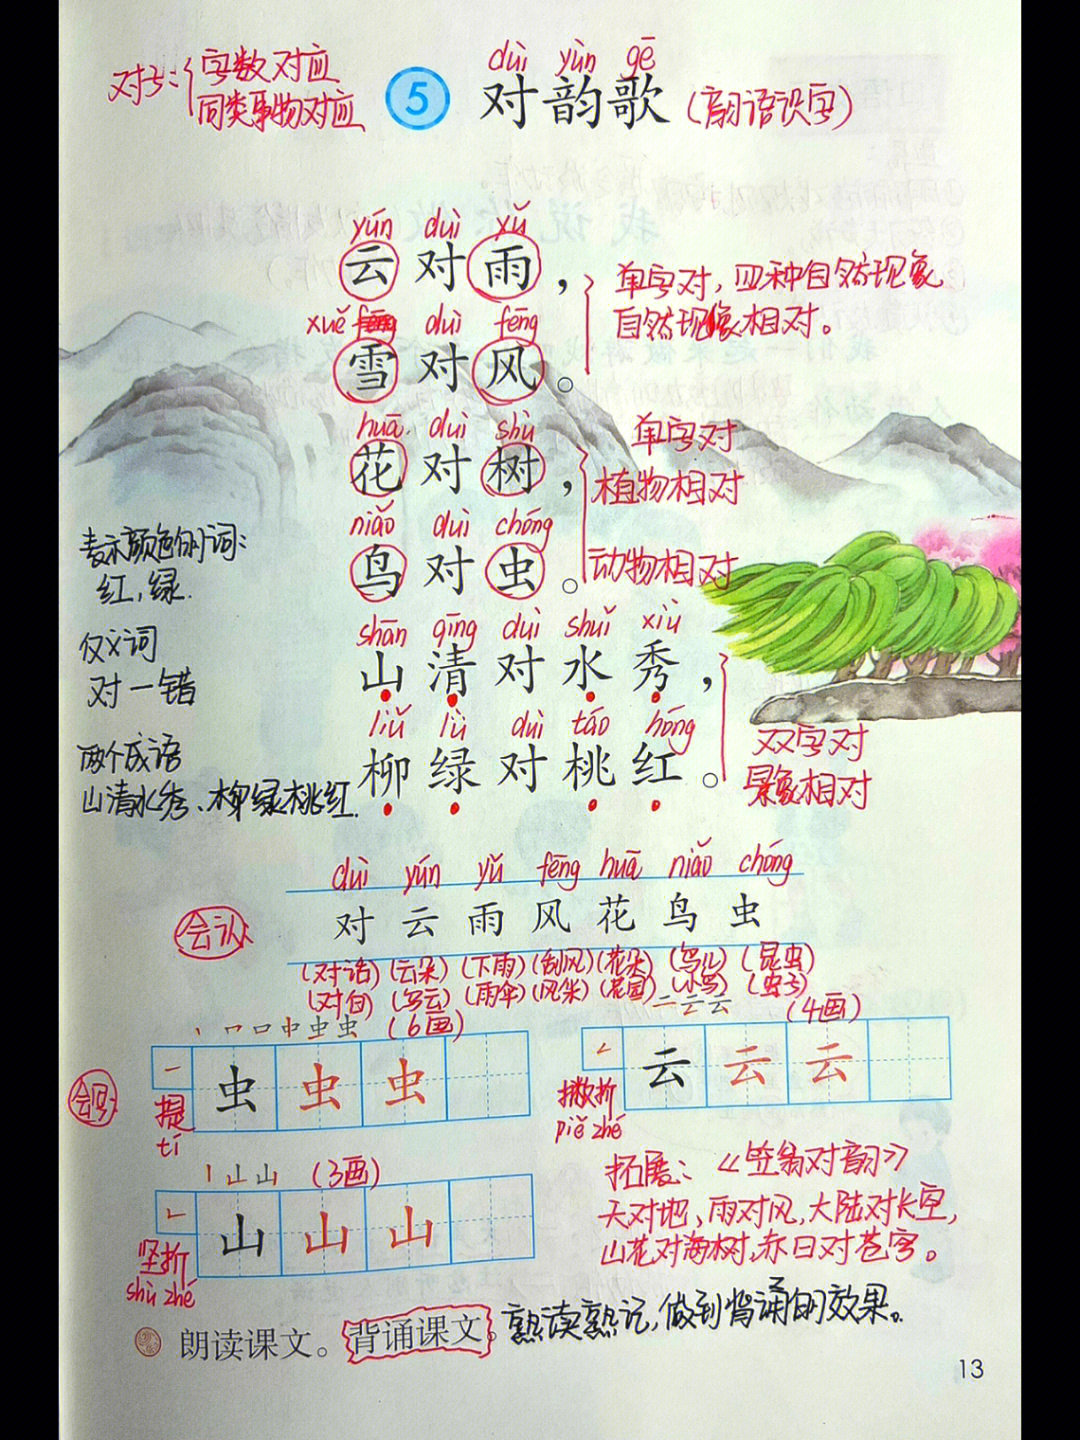 对子：字数对应
同类事物对应
duì yùn gē
5 对韵歌（韵语识字）
yún duì xǔ
云对雨，
单字对，四种自然现象
自然现象相对。
xuě duì fēng
雪对风。
huā duì shù
花对树，
单字对
植物相对
niǎo duì chóng
鸟对虫。
动物相对
表示颜色的词：
红，绿.
shān qīng duì shuǐ xiù
山清对水秀，
仅义词
对一错
liǔ lǜ duì táo hóng
柳绿对桃红。
双字对
景象相对
两个成语
山清水秀、柳绿桃红.
duì yún yǔ fēng huā niǎo chóng
会认
对 云 雨 风 花 鸟 虫
(对话)(云朵)(下雨)(刮风)(花朵)(鸟儿)(昆虫)
(对白)(乌云)(雨伞)(风筝)(花园)(小鸟)(虫子)
丶 口 口 中 虫 虫 (6画)
一 二 云 云 (4画)
会写
虫 虫 虫
提
tí
云 云 云
撇折
piě zhé
丨 山 山 (3画)
山 山 山
竖折
shù zhé
拓展：《笠翁对韵》
天对地，雨对风，大陆对长空，
山花对海树，赤日对苍穹。
朗读课文。背诵课文。熟读熟记，做到背诵的效果。
13